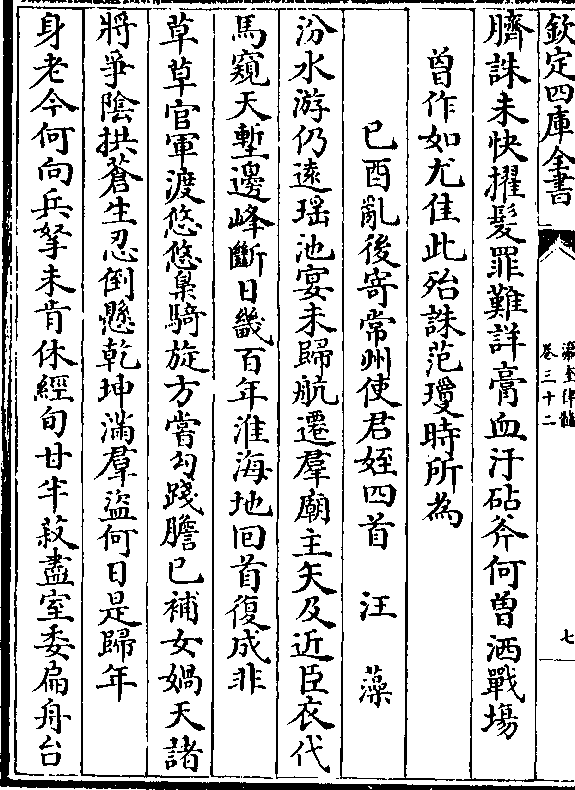 欽定四庫全書
瀛奎律髓
卷三十二
七
臍誅未快擢髮罪難詳膏血汙砧斧何曽洒戰塲
曽作如尤佳此殆誅范瓊時所為
已酉亂後寄常州使君姪四首 汪藻
汾水游仍逺瑶池宴未歸航遷羣廟主矢及近臣衣代
馬窺天塹邊峰斷日畿百年淮海地回首復成非
草草官軍渡悠悠梟騎旋方嘗勾踐膽已補女媧天諸
將爭陰拱蒼生忍倒懸乾坤滿羣盜何日是歸年
身老今何向兵拏未肯休經旬甘半菽盡室委扁舟台